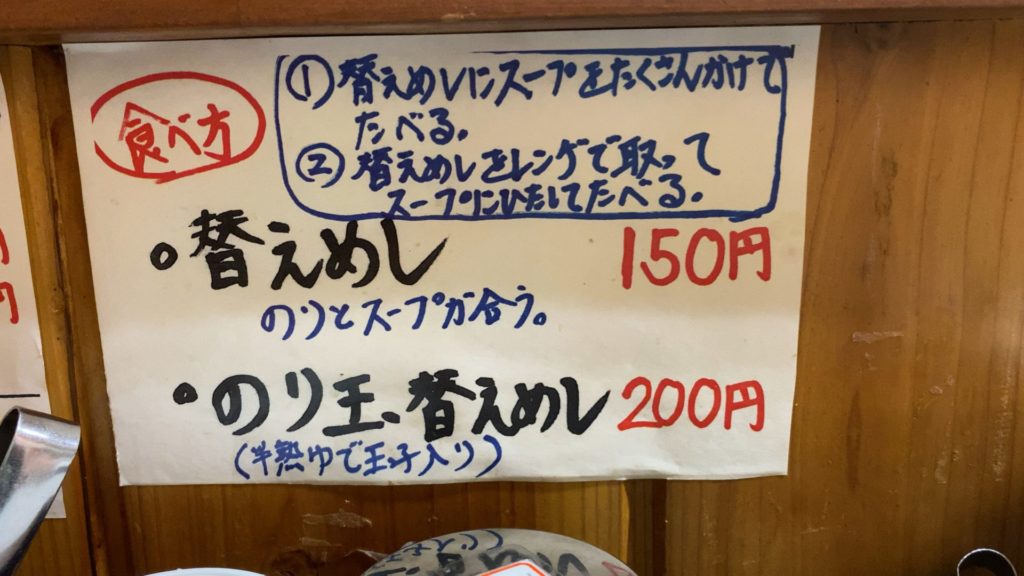 食べ方
① 替えめしにスープをたくさんかけて
たべる。
② 替えめしをレンゲで取って
スープにひたしてたべる。
。替えめし 150円
のりとスープが合う。
・のり玉、替えめし 200円
(半熟ゆで玉子入り)
円